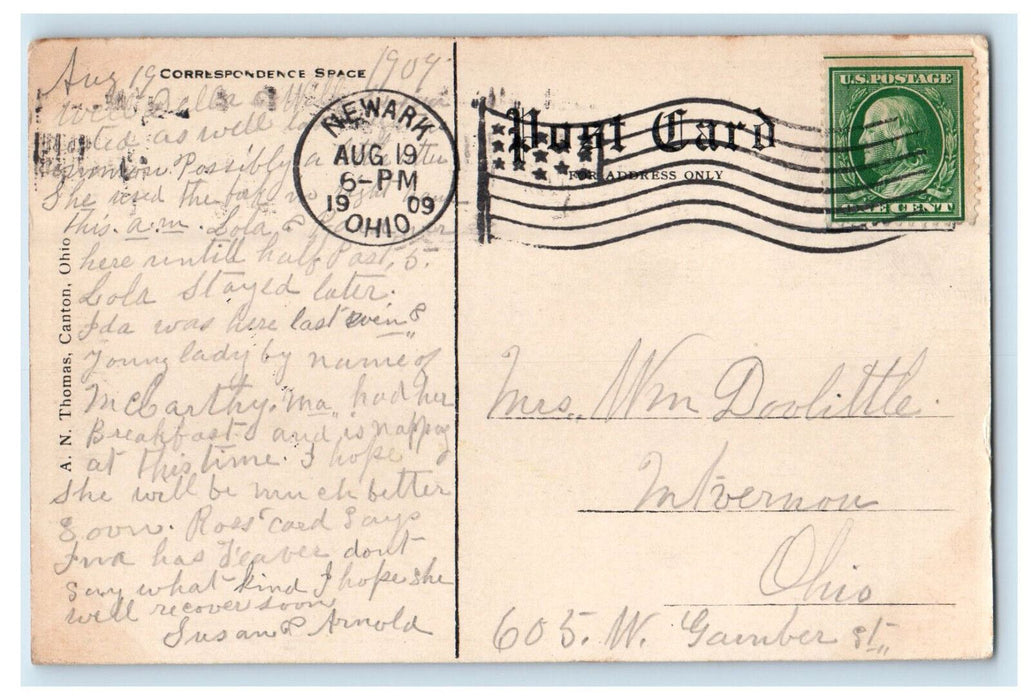 Aug 19 1909
CORRESPONDENCE SPACE
Well
as well
Possibly a
She the
this a.m. Lola &
here untill half Past 5.
Lola stayed later.
Ida was here last even &
Young lady by name of
McCarthy. Ma had her
Breakfast and is napping
at this time. I hope
She will be much better
Soon. Ross' card says
has Feaver dont
Say what kind I hope she
will recover soon
Susan & Arnold
A. N. Thomas, Canton, Ohio
NEWARK
AUG 19
6-PM
19 09
OHIO
Post Card
FOR ADDRESS ONLY
U.S. POSTAGE
ONE CENT
Mrs. Wm Doolittle.
Mt vernon
Ohio
605. W. Gamber st.,